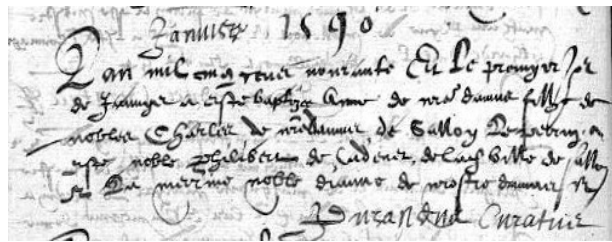 Janvier 1590
Lan mil cinq cens nonante Et Le premyer Jor
de Janvyer a este baptize Anne de nre dame fille de
nobles Charles de nredame de Sallon Le perrin a
este noble Philibert de Cadenet de lad ville de Sallon
Et La merrine noble diane de nostre dame
Durandus Curatus